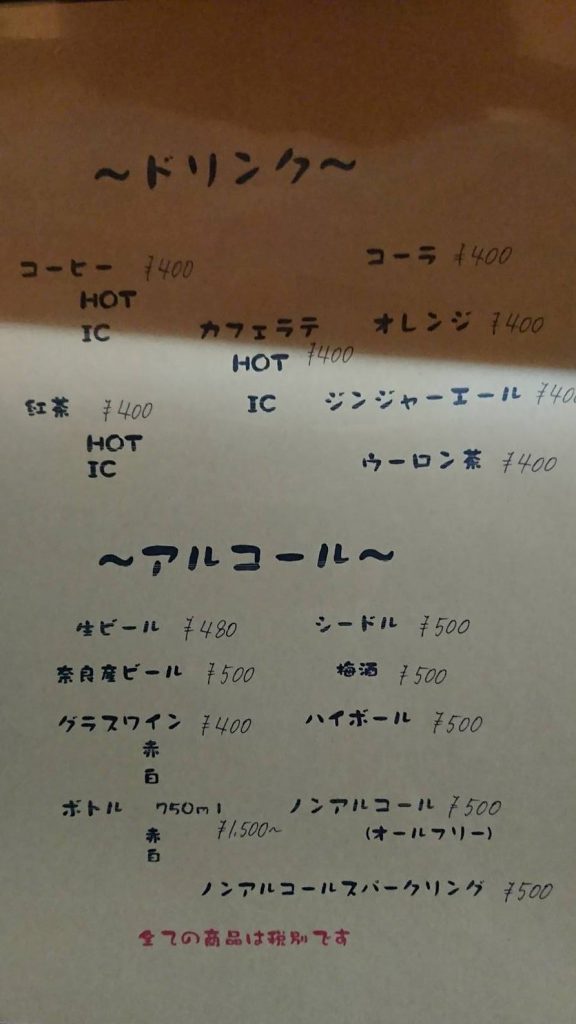 ～ドリンク～
コーヒー ¥400
HOT
IC
コーラ ¥400
カフェラテ
¥400
HOT
IC
オレンジ ¥400
紅茶 ¥400
HOT
IC
ジンジャーエール ¥400
ウーロン茶 ¥400
～アルコール～
生ビール ¥480
シードル ¥500
奈良産ビール ¥500
梅酒 ¥500
グラスワイン ¥400
赤
白
ハイボール ¥500
ボトル 750ml
¥1,500~
赤
白
ノンアルコール ¥500
(オールフリー)
ノンアルコールスパークリング ¥500
全ての商品は税別です